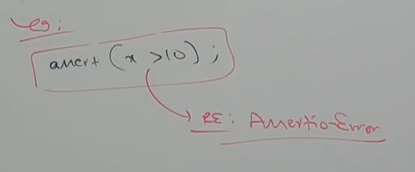 eg:
assert (x >10) ;
RE: AssertionError